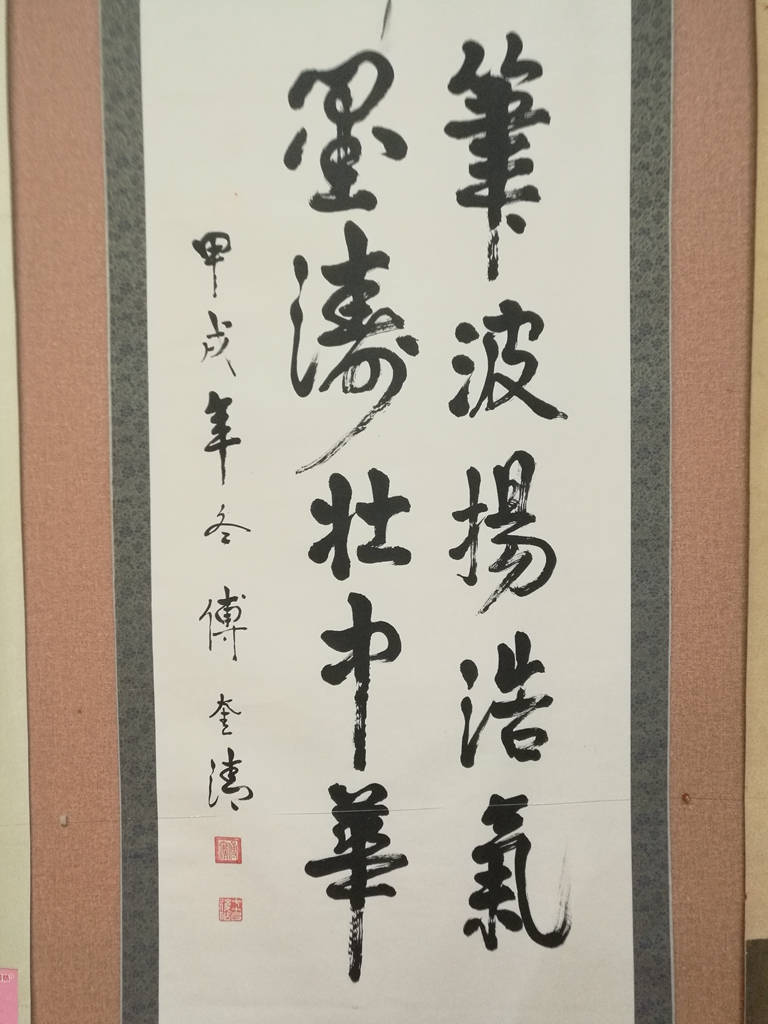 筆波揚浩氣
墨濤壯中華
甲戌年冬 傅奎清